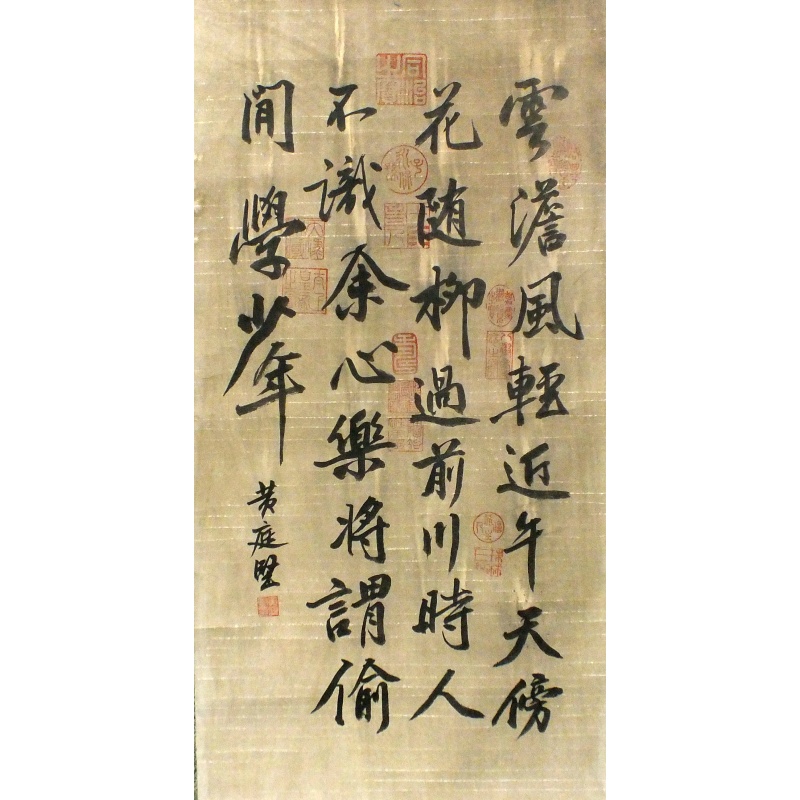 雲澹風輕近午天傍
花随柳過前川時人
不識余心樂將謂偷
閒學少年
黄庭堅